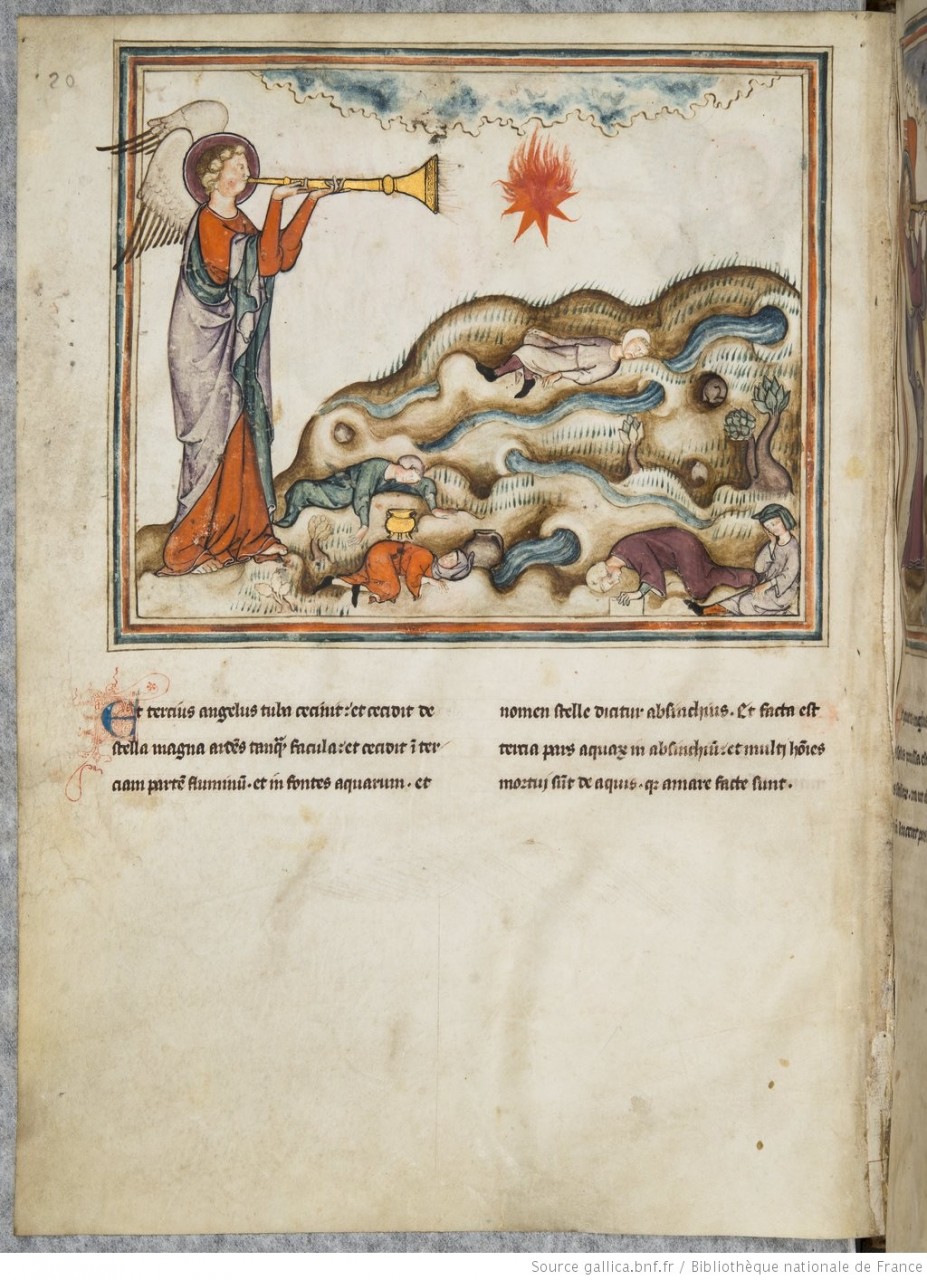 20
Et tercius angelus tuba cecinit: et cecidit de
stella magna ardēs tanqȝ facula: et cecidit ī ter
ciam partē fluminū. et in fontes aquarum. et
nomen stelle dicitur absinchius. Et facta est
tercia pars aquaꝝ in absinchiū: et multi hoīes
mortui sūt de aquis. qꝛ amare facte sunt.
Source gallica.bnf.fr / Bibliothèque nationale de France